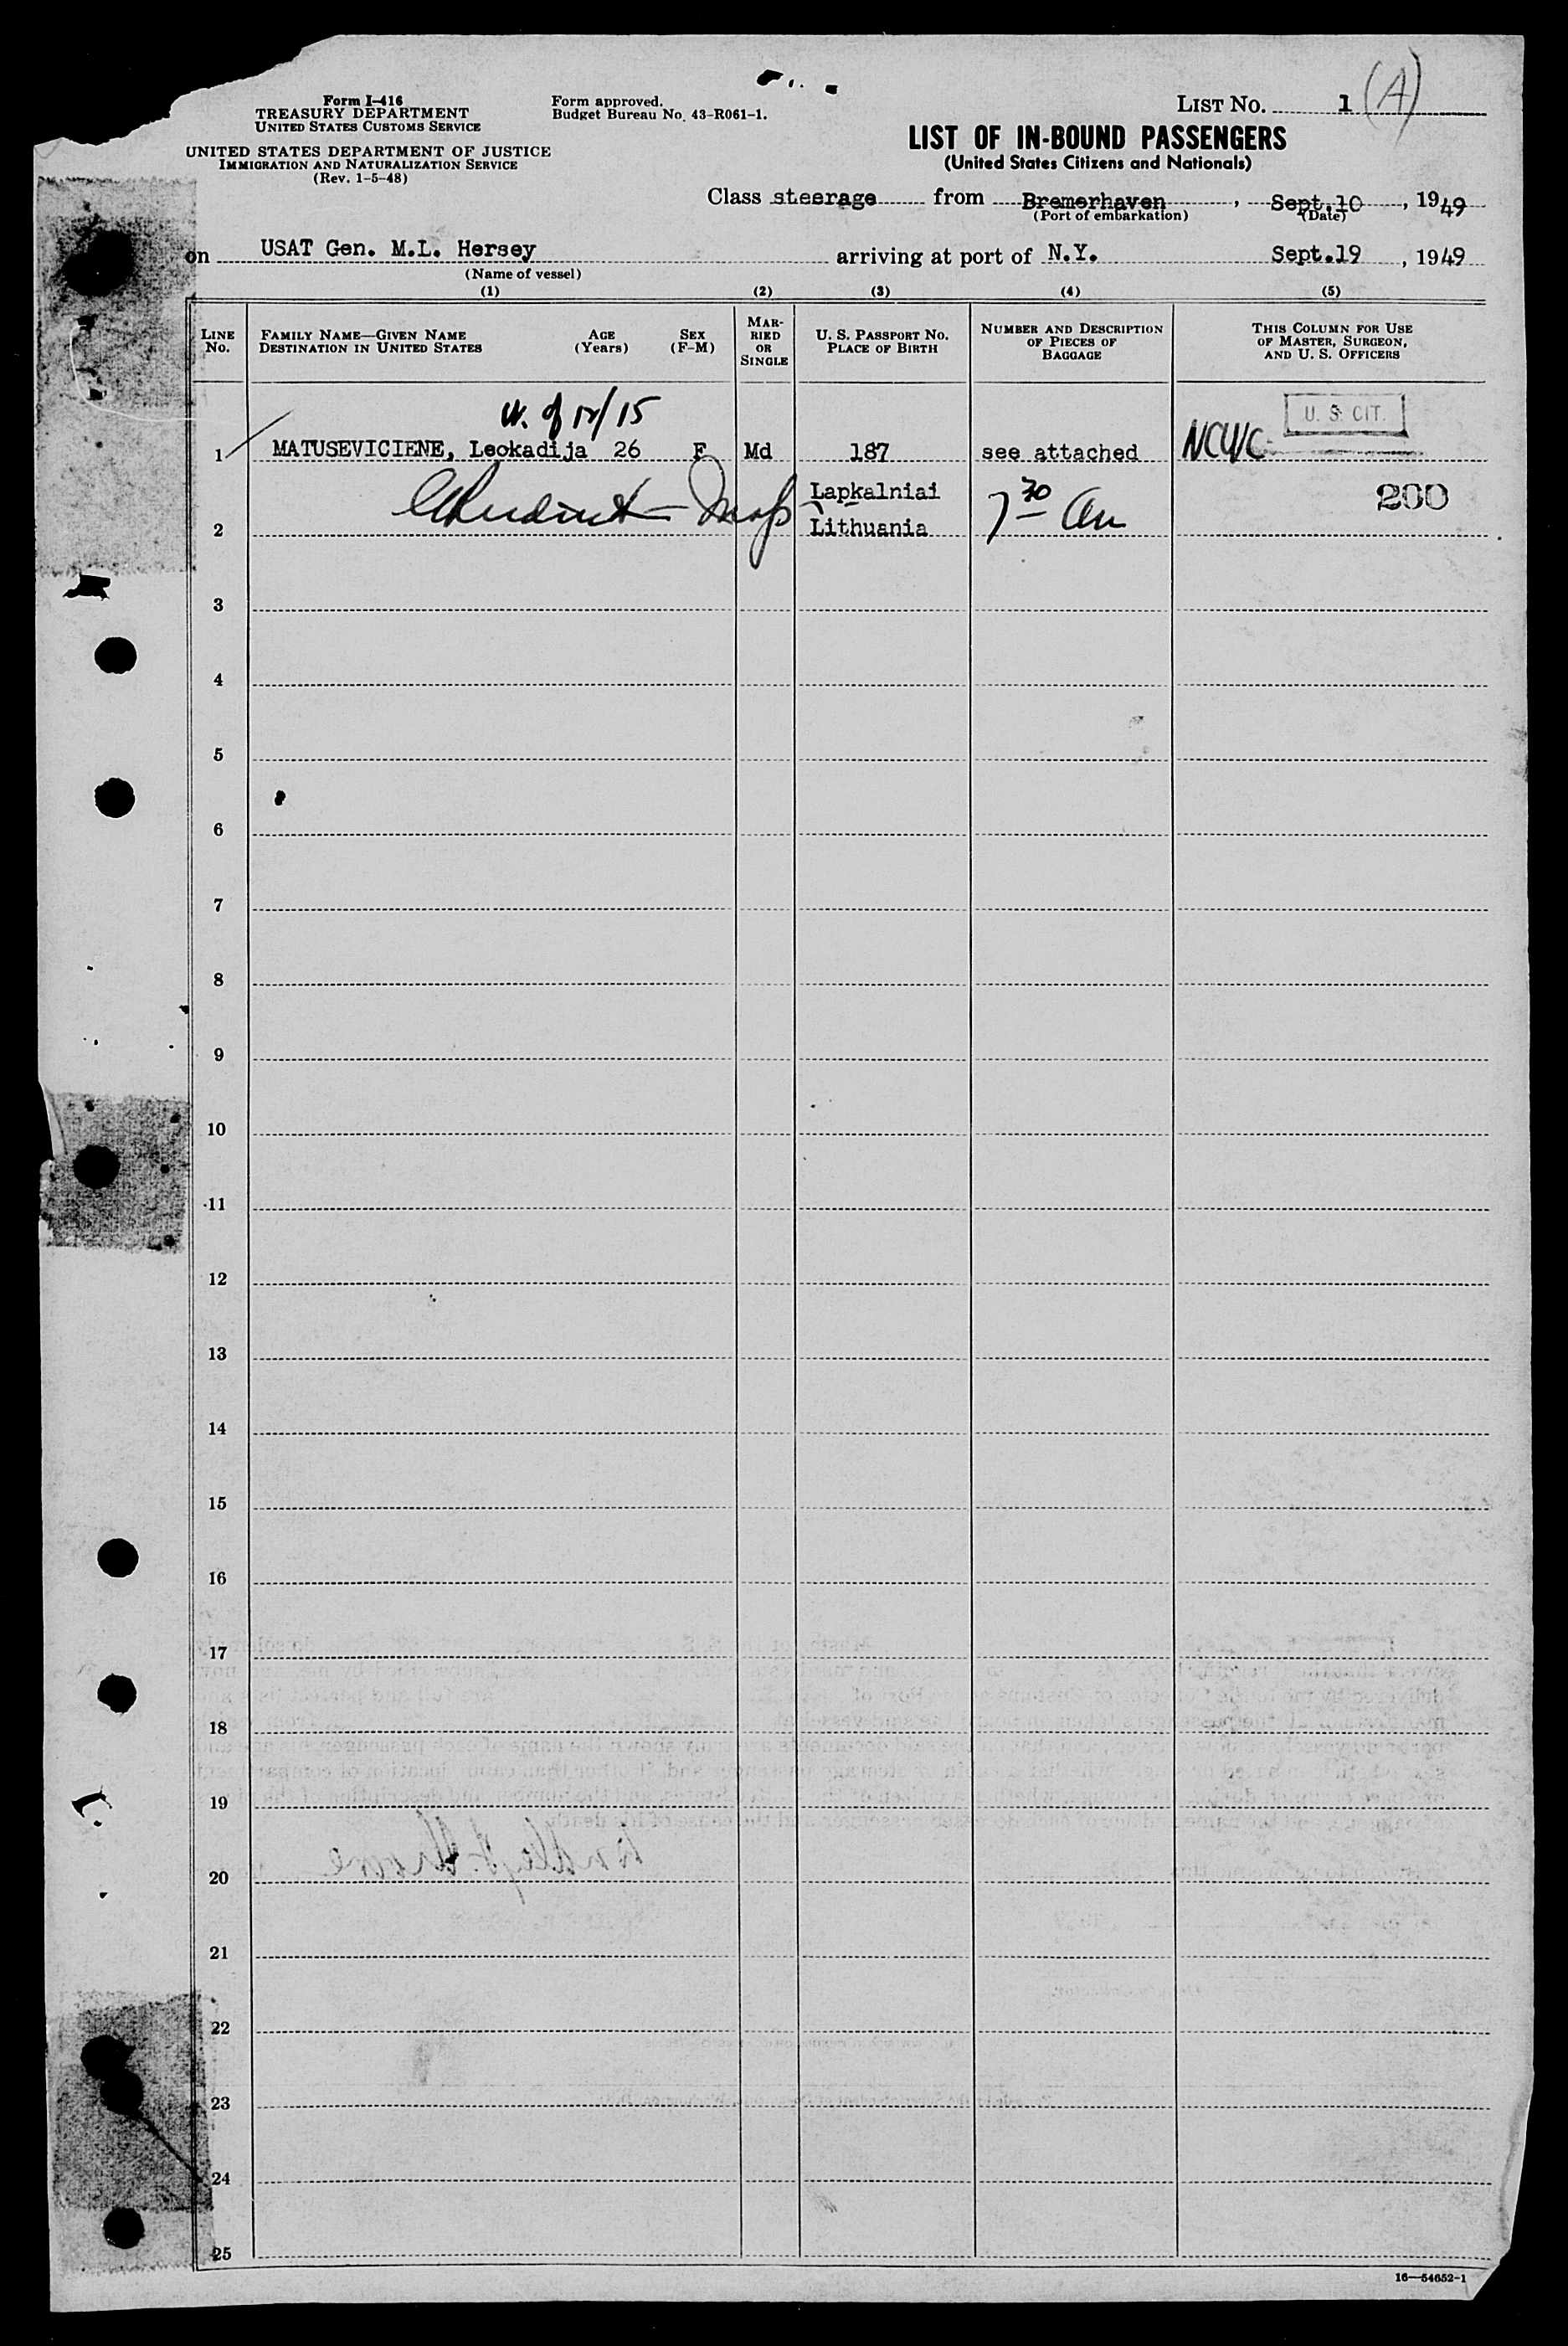 Form I-416
TREASURY DEPARTMENT
UNITED STATES CUSTOMS SERVICE
UNITED STATES DEPARTMENT OF JUSTICE
IMMIGRATION AND NATURALIZATION SERVICE
(Rev. 1-5-48)
Form approved.
Budget Bureau No. 43-R061-1.
LIST NO. 1 (A)
LIST OF IN-BOUND PASSENGERS
(United States Citizens and Nationals)
Class steerage from Bremerhaven, Sept.10, 1949
(Port of embarkation) (Date)
on USAT Gen. M.L. Hersey arriving at port of N.Y. Sept.19, 1949
(Name of vessel)
(1) (2) (3) (4) (5)
LINE NO.
FAMILY NAME—GIVEN NAME
DESTINATION IN UNITED STATES
AGE (Years)
SEX (F-M)
MARRIED OR SINGLE
U. S. PASSPORT NO.
PLACE OF BIRTH
NUMBER AND DESCRIPTION OF PIECES OF BAGGAGE
THIS COLUMN FOR USE OF MASTER, SURGEON, AND U. S. OFFICERS
W. of 12/15
U. S. CIT.
1 MATUSEVICIENE, Leokadija 26 F Md 187 see attached NCWC
Lapkalniai 7 30 200
2 Lithuania
3
4
5
6
7
8
9
10
11
12
13
14
15
16
17
18
19
20
21
22
23
24
25
16—54652-1